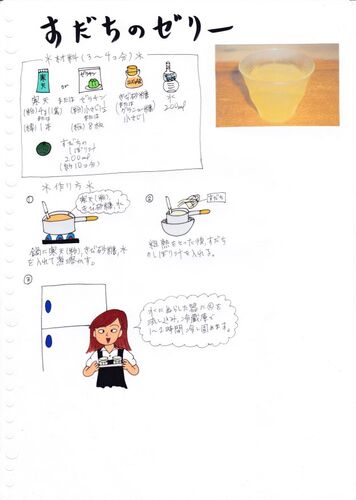 すだちのゼリー
※材料(3〜4コ分)※
寒天 または ゼラチン
(粉)
または
(棒)1本
(粉)小さじ2
または
(板)8枚
きび砂糖
または
グラニュー糖
小さじ1
水
200ml
すだちの
しぼり汁
200ml
(約10コ分)
※作り方※
①
寒天(粉)、
きび砂糖、水
鍋に寒天(粉)、きび砂糖、水
を入れて煮溶かす。
②
すだち
粗熱をとった後、すだち
のしぼり汁を入れる。
③
水にぬらした器に②を
流し込み、冷蔵庫で
1〜2時間冷し固めます。